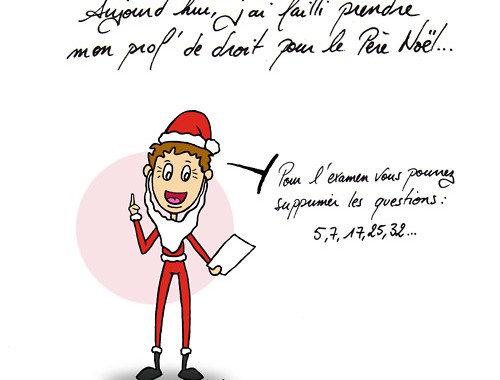 Aujourd'hui, j'ai failli prendre
mon prof' de droit pour le Père Noël...
Pour l'examen vous pouvez
supprimer les questions :
5,7,17,25,32...